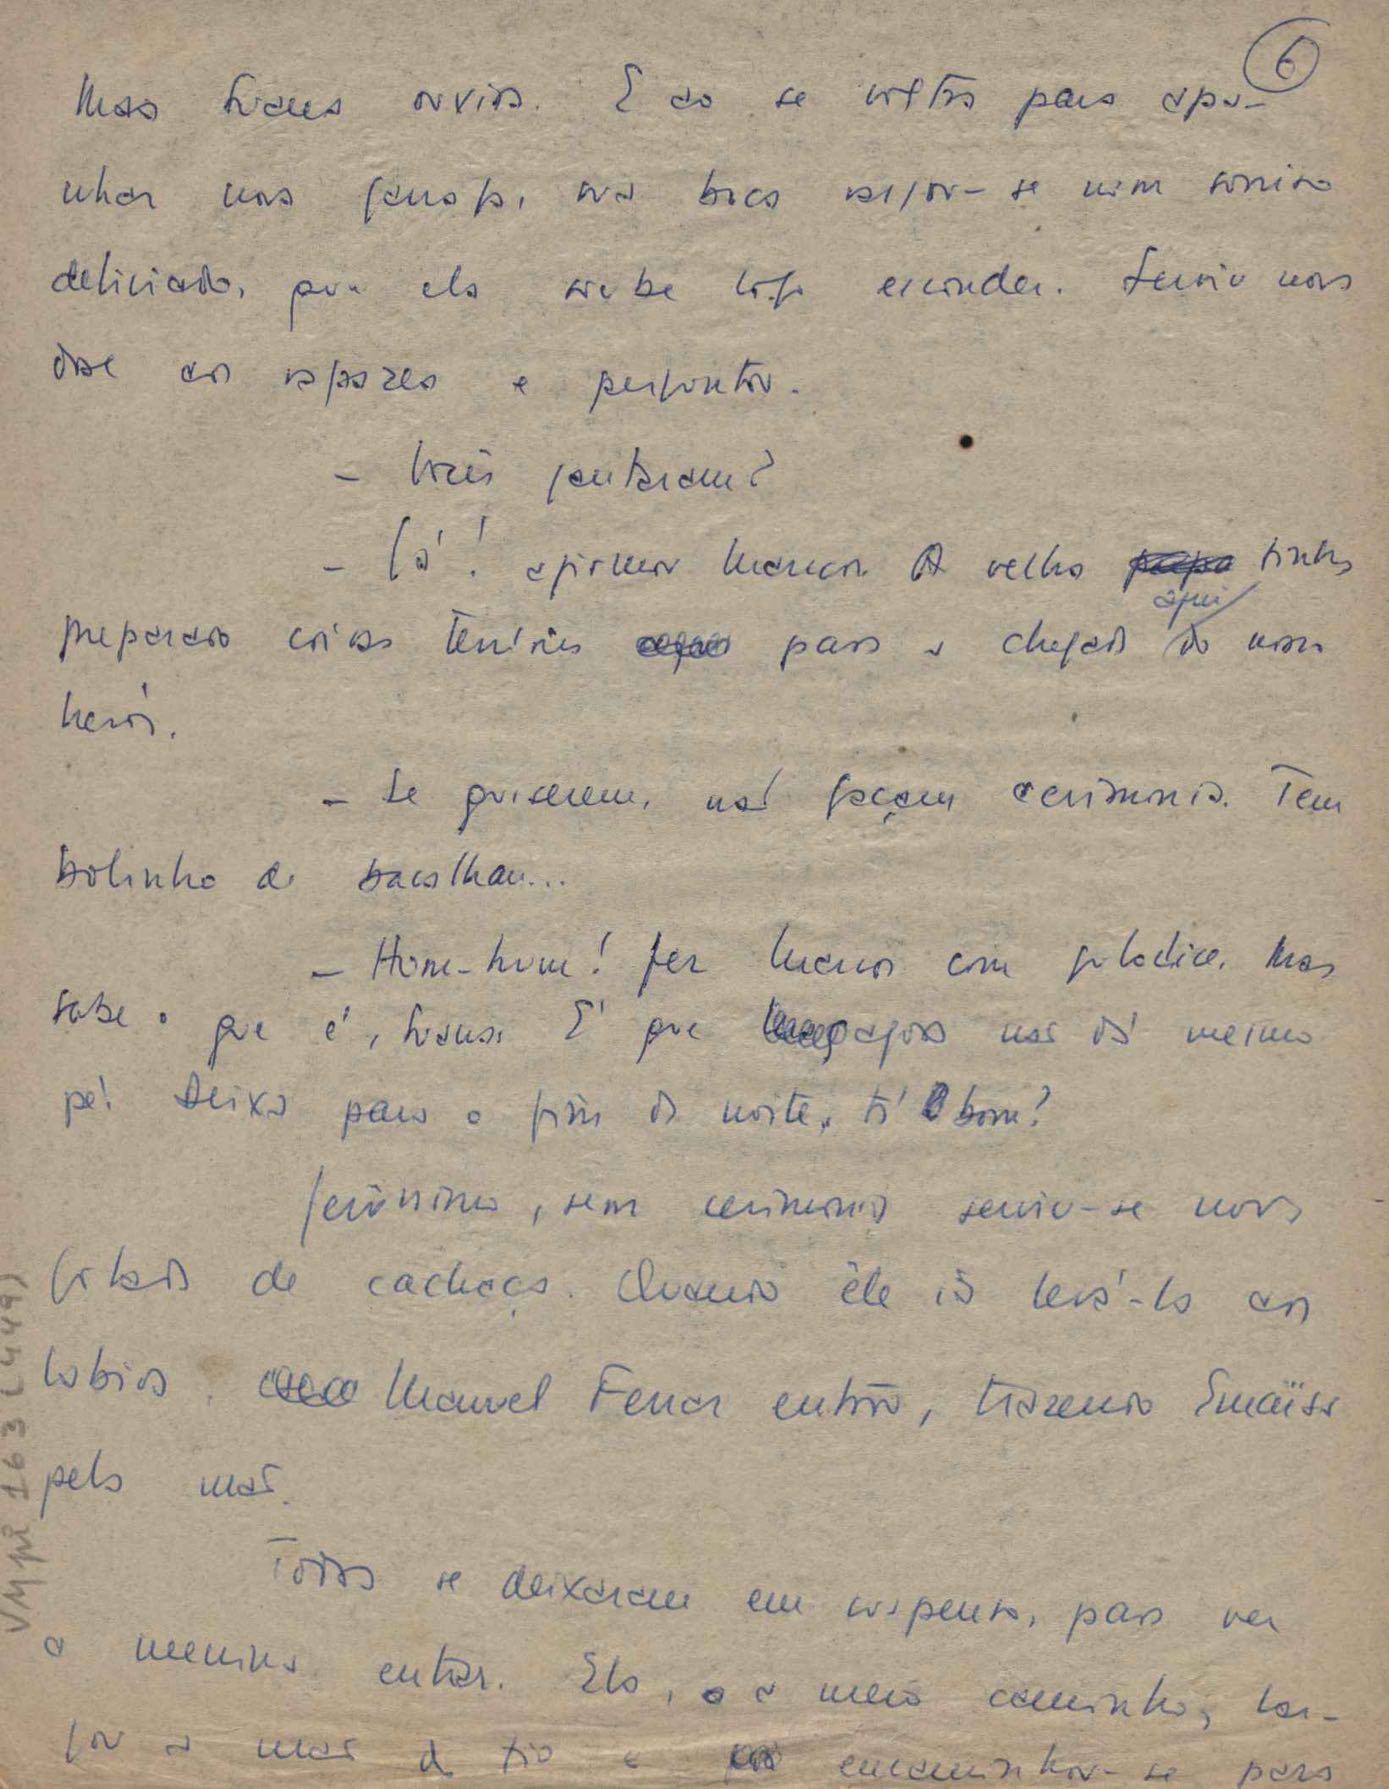 6
Mas Luana ouvira. E ao se voltar para apa-
nhar nova garrafa, sua boca rasgou-se num sorriso
deliciado, que ela soube logo esconder. Serviu nova
dose aos rapazes e perguntou.
- Vocês jantaram?
- Já! afirmou Marcos. A velha tinha
preparado coisas terríveis para a chegada aqui do nosso
herói.
- Se quiserem, não façam cerimonia. Tem
bolinho de bacalhau...
- Hum-hum! fez com gulodice. Mas
sabe o que é, Luana. É que agora não dá mesmo
pé. Deixa para o fim da noite, tá bom?
Jerônimo, sem cerimonia serviu-se nova
golada de cachaça. Quando êle ia levá-la aos
labios, Manuel Ferrar entrou, trazendo
pela mão.
Todos se deixaram em suspenso, para ver
a menina entrar. Ela, a meio caminho, lar-
gou a mão do tio e encaminhou-se para
VMpi 163 (449)